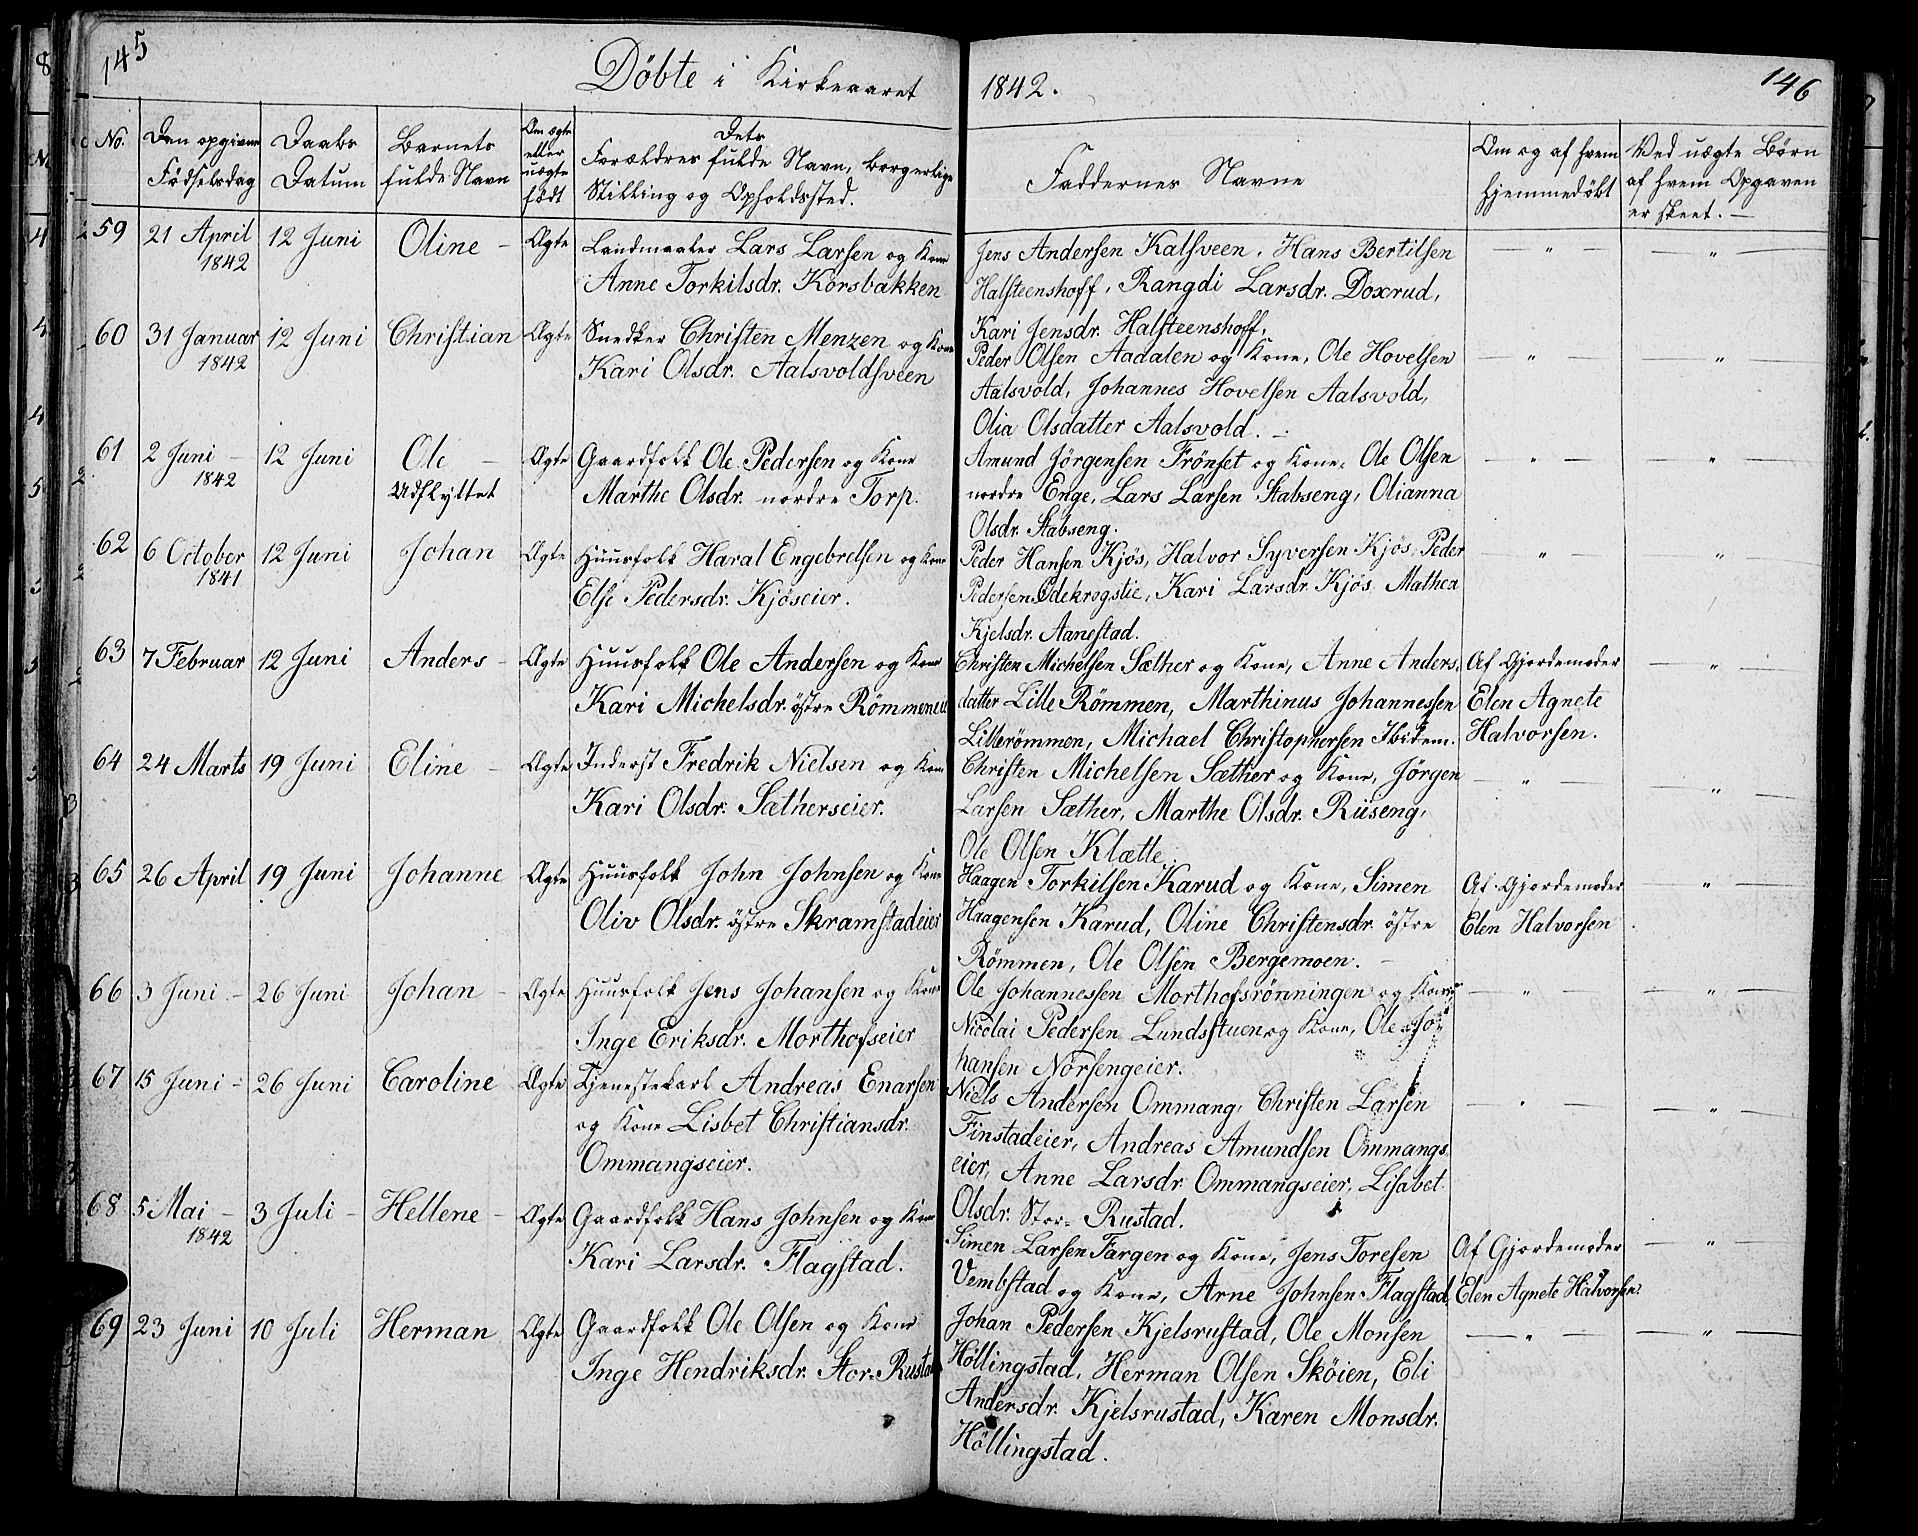 145
Döbte i Kirkeaaret
1842.
146
No.
Den opgivne
Födselsdag
Daabs
Datum
Barnets
fulde Navn
Om ægte
eller
uægte
födt
Dets
Forældres fulde Navn, borgerlige
Stilling og Opholdssted.
Faddernes Navne
Om og af hvem
hjemmedöbt
Ved uægte Börn
af hvem Opgaven
er skeet. —
59 21 April 12 Juni Oline – Ægte Landmaaler Lars Larsen og Kone
1842 Anne Torkilsdr. Korsbakken
Jens Andersen Kalsveen, Hans Bertilsen — " — — " —
Halsteenshoff, Rangdi Larsdr. Doxrud,
Kari Jensdr. Halsteenshoff,
60 31 Januar 12 Juni Christian Ægte Snedker Christen Menzen og Kone
1842 Kari Olsdr. Aalsvoldsveen
Peder Olsen Aadalen og Kone, Ole Hovelsen — " — — " —
Aalsvold, Johannes Hovelsen Aalsvold,
Olia Olsdatter Aalsvold. —
61 2 Juni – 12 Juni Ole – Ægte Gaardfolk Ole Pedersen og Kone
1842 Udflyttet Marthe Olsdr. nordre Torp.
Amund Jörgensen Frönset og Kone, Ole Olsen — " — — " —
nordre Enge, Lars Larsen Stabseng, Olianna
Olsdr. Stabseng.
62 6 October 12 Juni Johan Ægte Huusfolk Haral Engebretsen og Kone
1841 Else Pedersdr. Kjöseier.
Peder Hansen Kjös, Halvor Syversen Kjös, Peder — " — "
Pedersen Odekrogstie, Kari Larsdr. Kjös, Mathea
Kjelsdr. Aanestad.
63 7 Februar 12 Juni Anders – Ægte Huusfolk Ole Andersen og Kone
Kari Michelsdr. östre Römmeneie
Christen Michelsen Sæther og Kone, Anne Anders, Af Gjordemoder — " —
datter Lille Römmen, Marthinus Johannessen Elen Agnete
Lillerömmen, Michael Christophersen Ibidem. Halvorsen.
64 24 Marts 19 Juni Eline – Ægte Inderst Fredrik Nielsen og Kone
Kari Olsdr. Sætherseier.
Christen Michelsen Sæther og Kone, Jörgen — " — — " —
Larsen Sæther, Marthe Olsdr. Riiseng,
Ole Olsen Klætte.
65 26 April 19 Juni Johanne Ægte Huusfolk John Johnsen og Kone
Oliv Olsdr. östre Skramstadeier
Haagen Torkilsen Karud og Kone, Simen Af Gjordemoder — " —
Haagensen Karud, Oline Christensdr. östre Elen Halvorsen
Römmen, Ole Olsen Bergemoen. —
66 3 Juni – 26 Juni Johan – Ægte Huusfolk Jens Johansen og Kone
Inge Eriksdr. Morthofseier
Ole Johannessen Morthofsrönningen og Kone, — " — — " —
Nicolai Pedersen Lundsstuen og Kone, Ole Jo=
hansen Norsengeier.
67 15 Juni – 26 Juni Caroline Ægte Tjenestekarl Andreas Enarsen
og Kone Lisbet Christiansdr.
Ommangseier.
Niels Andersen Ommang, Christen Larsen — " — — " —
Finstadeier, Andreas Amundsen Ommangs,
eier, Anne Larsdr. Ommangseier, Lisabet
Olsdr. Stor= Rustad.
68 5 Mai – 3 Juli – Hellene – Ægte Gaardfolk Hans Johnsen og Kone
1842 Kari Larsdr. Flagstad.
Simen Larsen Fargen og Kone, Jens Toresen Af Gjordemoder — " —
Vembstad og Kone, Arne Johnsen Flagstad, Elen Agnete Halvorsen.
69 23 Juni 10 Juli Herman Ægte Gaardfolk Ole Olsen og Kone
Inge Hendriksdr. Stor=Rustad
Johan Pedersen Kjelsrustad, Ole Monsen — " — — " —
Höllingstad, Herman Olsen Sköien, Eli
Andersdr. Kjelsrustad, Karen Monsdr.
Höllingstad.